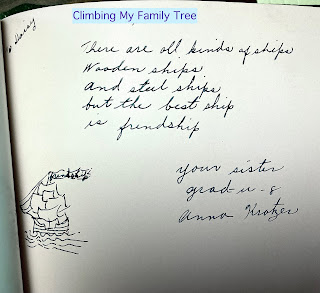 Climbing My Family Tree
Daisy
There are all kinds of ships
Wooden ships
and steel ships
but the best ship
is frendship
friendship
your sister
grad-u-8
Anna Kratzer